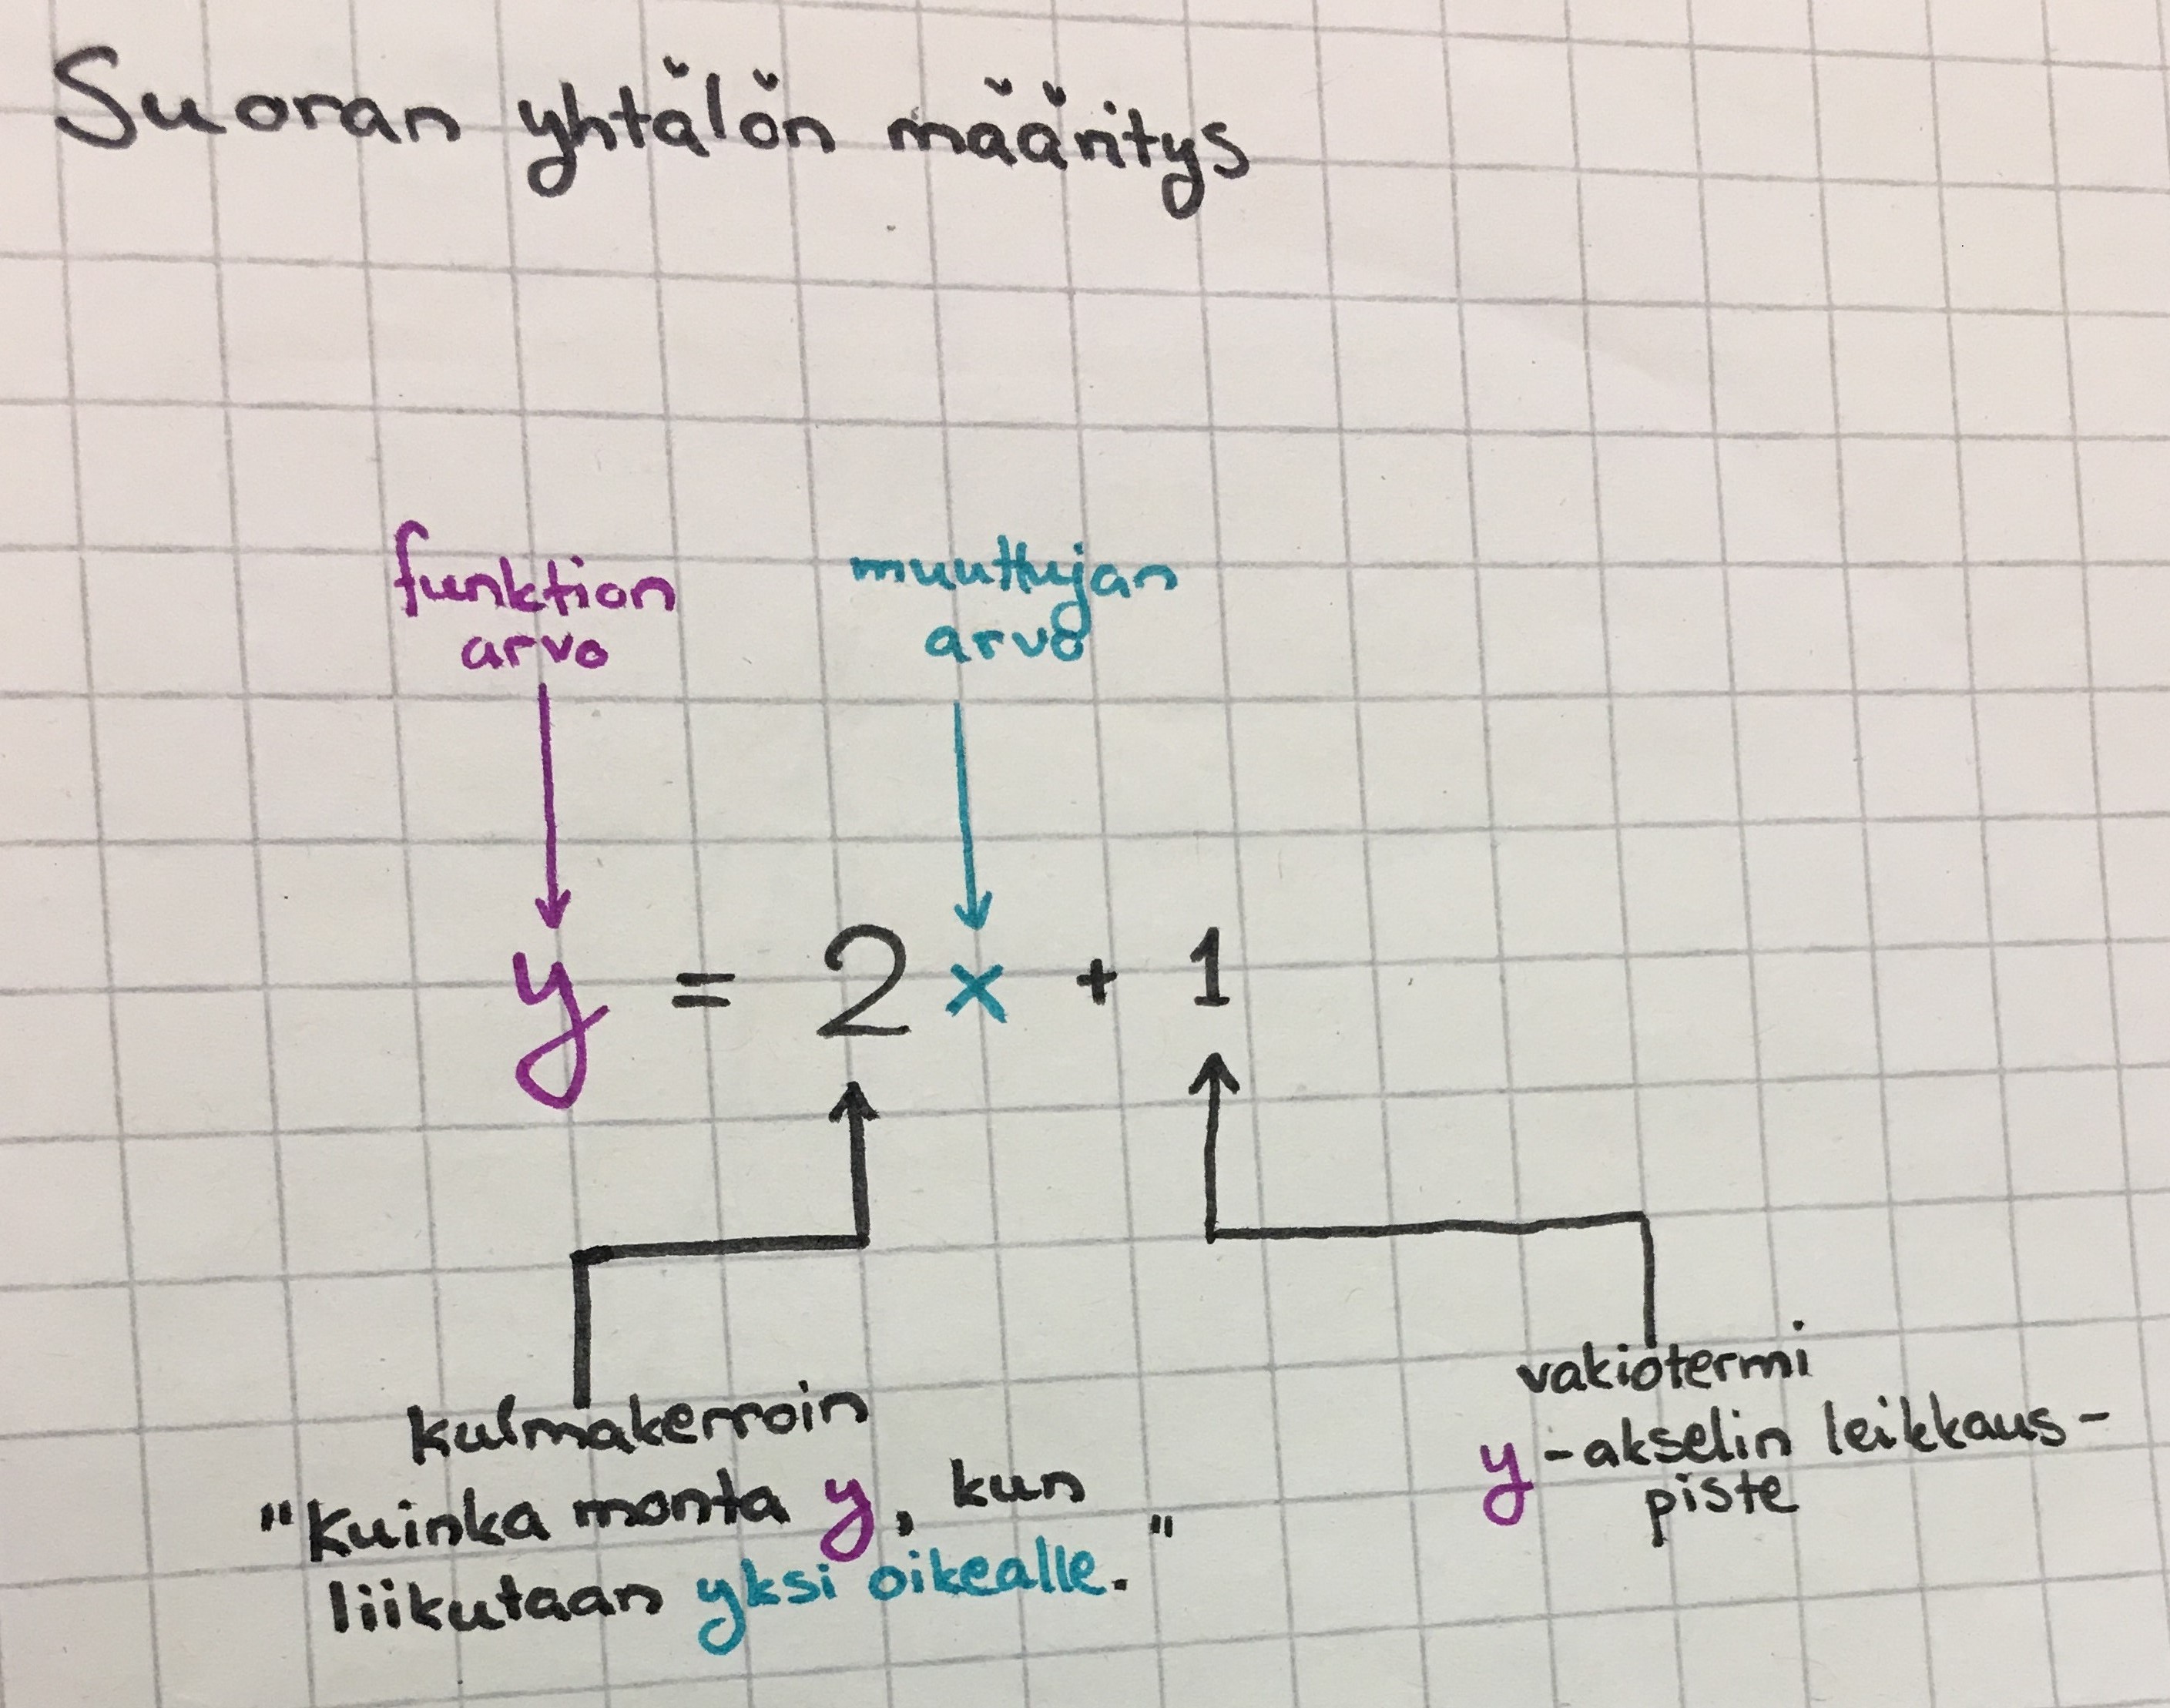 Suoran yhtälön määritys
funktion
arvo
muuttujan
arvo
y = 2x + 1
kulmakerroin
"Kuinka monta y, kun
liikutaan yksi oikealle."
vakiotermi
y-akselin leikkaus-
piste